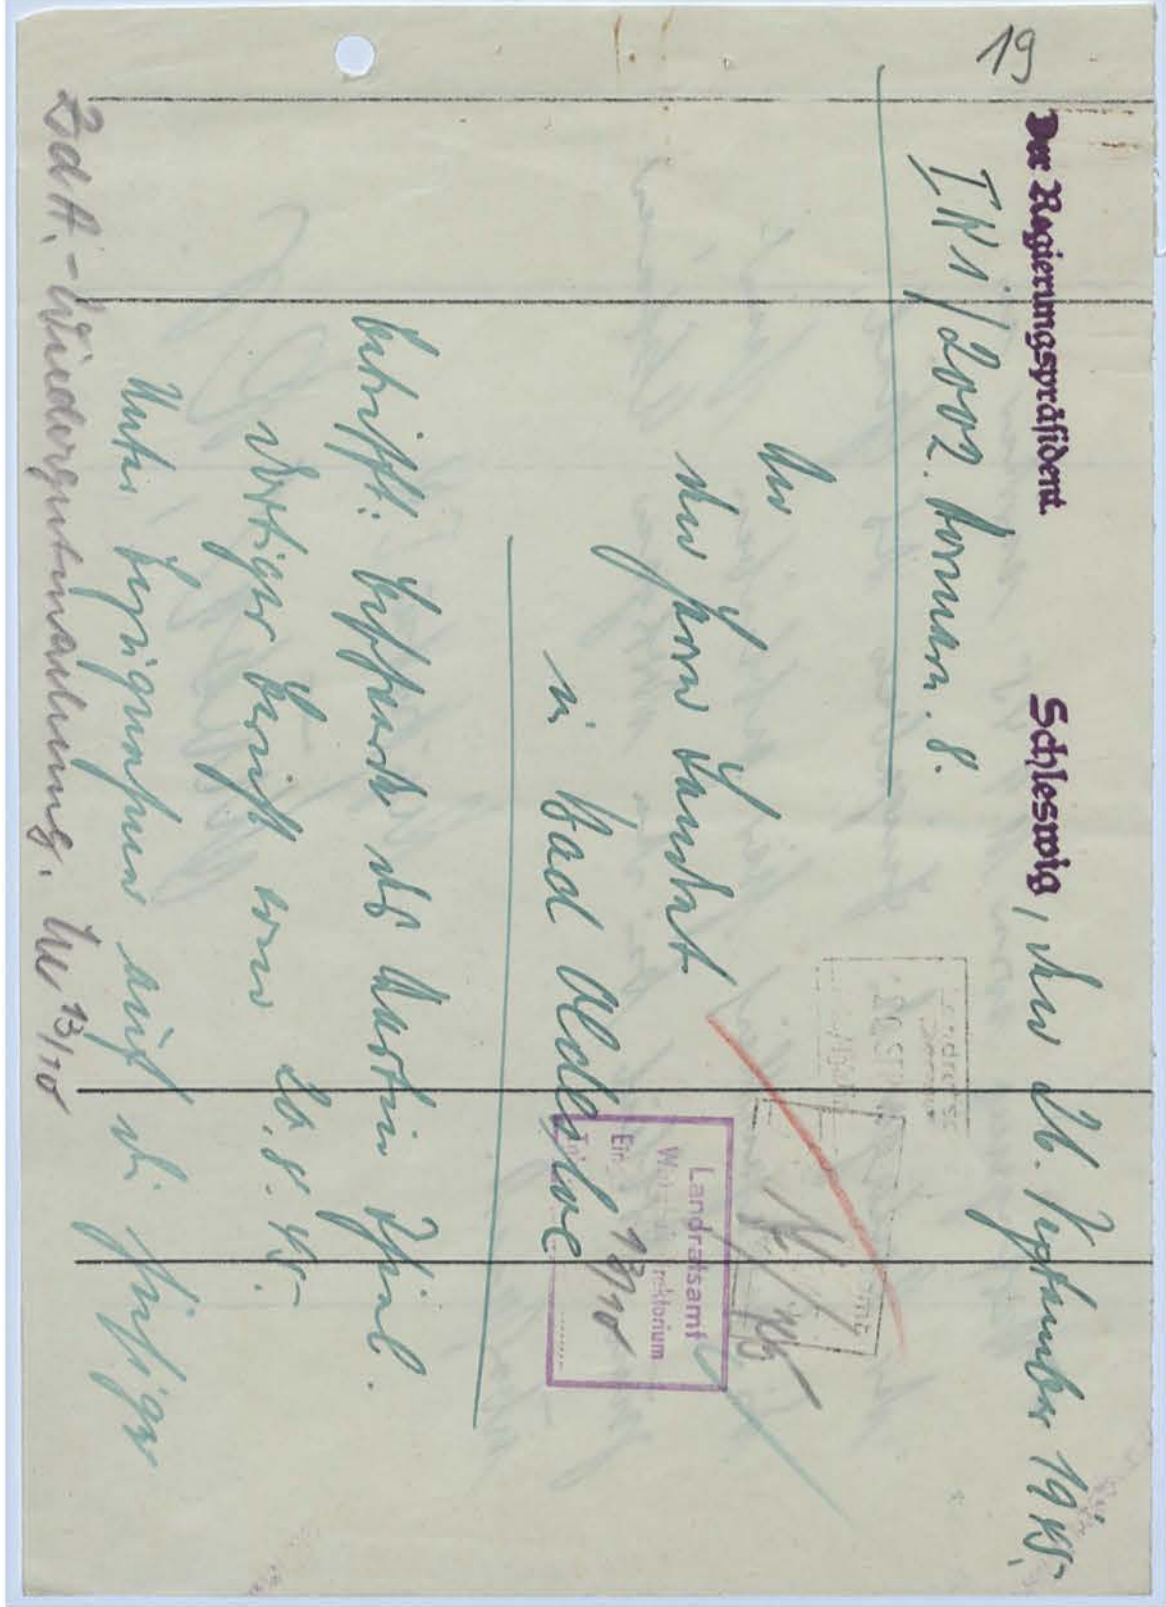 19
Der Regierungspräsident.
Schleswig, den 26. September 1945
I K 1 / 2002. Storman. 8.
An
den Herrn Landrat
in Bad Oldesloe
Landratsamt
Ein 13/10
Betrifft: des Martin
Dortiger Bericht vom 20.8.45.
Unter Bezugnahme auf die hiesige
Z.d.A. - Wiedergutmachung. 13/10